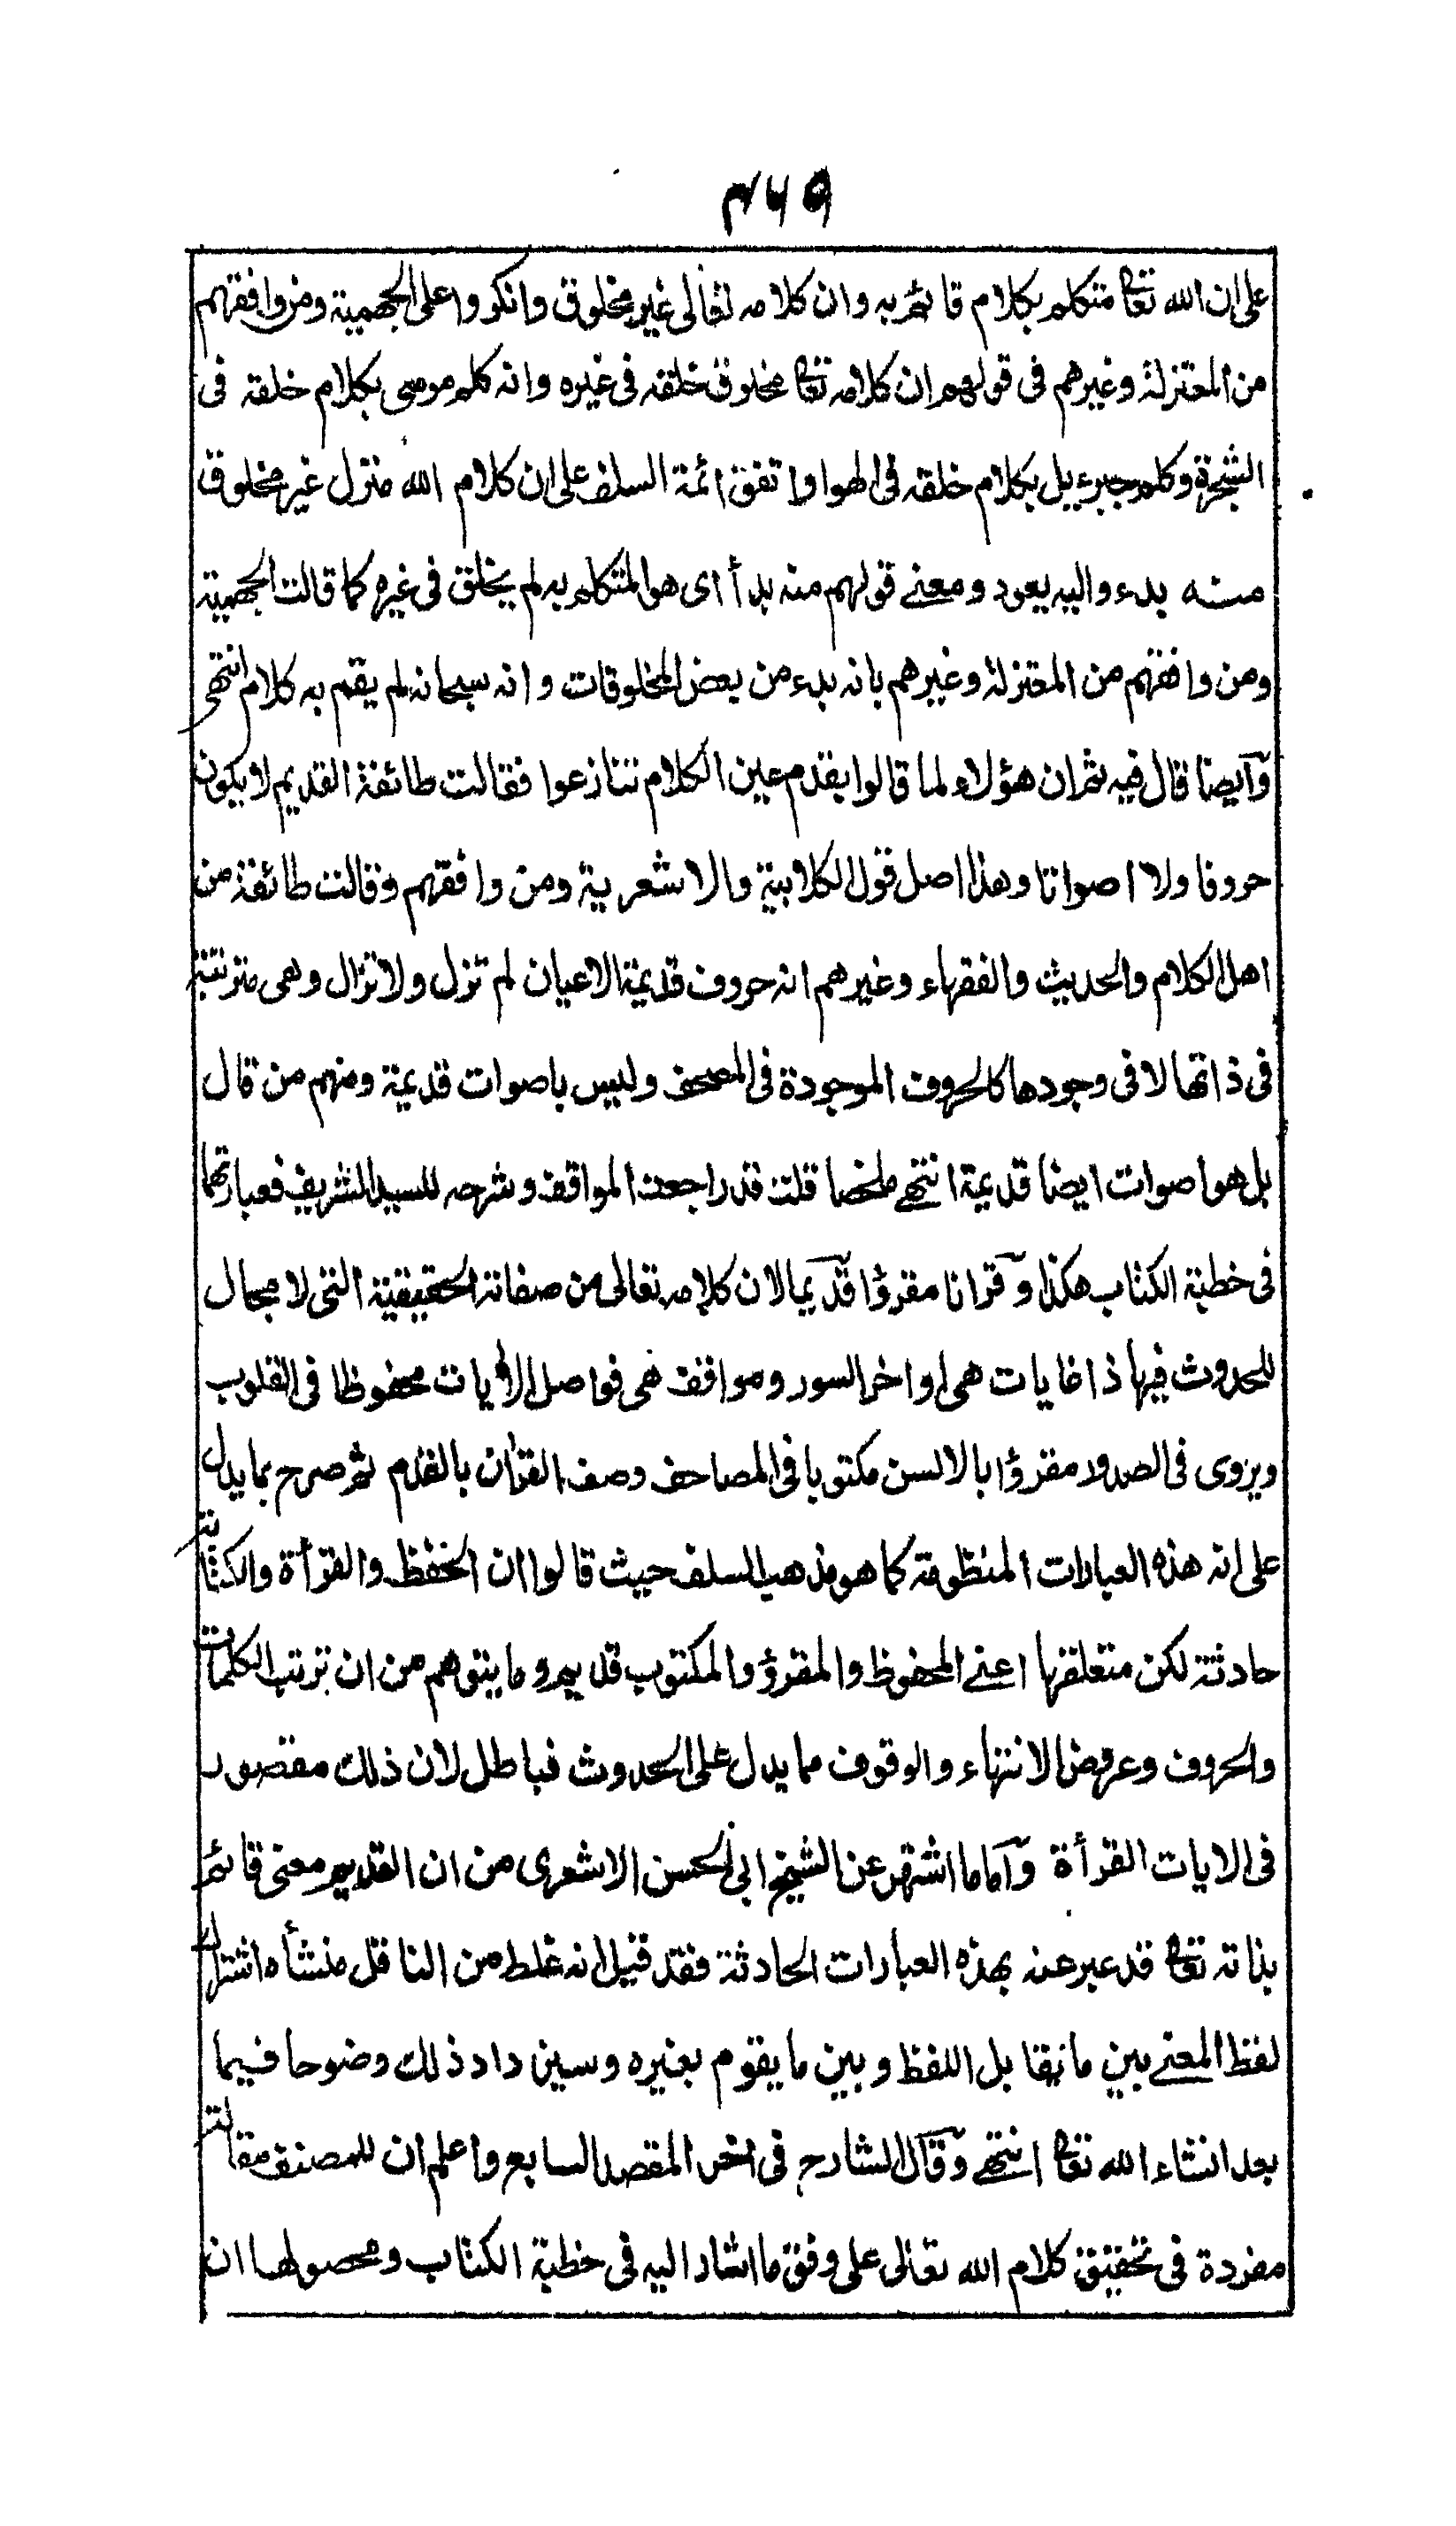 ۴۶۹
على ان الله تعالى متكلم بكلام قائم به وان كلامه تعالى غير مخلوق وانكروا على الجهمية ومن وافقهم
من المعتزلة وغيرهم فى قولهم ان كلامه تعالى مخلوق خلقه فى غيره وانه كلم موسى بكلام خلقه فى
الشجرة وكلم جبرءيل بكلام خلقه فى الهوا واتفق ائمة السلف على ان كلام الله منزل غير مخلوق
منه بدء واليه يعود ومعنے قولهم منه بدأ اى هو المتكلم به لم يخلق فى غيره كما قالت الجهمية
ومن وافقهم من المعتزلة وغيرهم بانه بدء من بعض المخلوقات وانه سبحانه لم يقم به كلام انتهى
وايضا قال فيه ثم ان هؤلاء لما قالوا بقدم عين الكلام تنازعوا فقالت طائفة القديم لا يكون
حروفا ولا اصواتا وهذا اصل قول الكلابية والاشعرية ومن وافقهم وقالت طائفة من
اهل الكلام والحديث والفقهاء وغيرهم انه حروف قديمة الاعيان لم تزل ولا تزال وهى مترتبة
فى ذاتها لا فى وجودها كالحروف الموجودة فى المصحف وليس باصوات قديمة ومنهم من قال
بل هو اصوات ايضا قديمة انتهے ملخصا قلت قد راجعت المواقف وشرحه للسيد الشريف فعبارتهما
فى خطبة الكتاب هكذا وقرانا مقرؤا قديما لان كلامه تعالى من صفاته الحقيقية التى لا مجال
للحدوث فيها ذا غايات هى اواخر السور ومواقف هى فواصل الأيات محفوظا فى القلوب
ويروى فى الصدور مقرؤا بالالسن مكتوبا فى المصاحف وصف القران بالقدم ثم صرح بما يدل
على انه هذه العبارات المنظومة كما هو مذهب السلف حيث قالوا ان الحفظ والقرأة والكتابة
حادثة لكن متعلقها اعنے المحفوظ والمقرؤ والمكتوب قديم وما يتوهم من ان ترتب الكلمات
والحروف وعروض الانتهاء والوقوف مما يدل على الحدوث فباطل لان ذلك مقصور
فى الايات القرأة واما ما اشتهر عن الشيخ ابى الحسن الاشعرى من ان القديم معنى قائم
بذاته تعالى قد عبر عنه بهذه العبارات الحادثة فقد قيل انه غلط من الناقل منشأه اشتراك
لفظ المعنے بين ما يقابل اللفظ وبين ما يقوم بغيره وسيزداد ذلك وضوحا فيما
بعد انشاء الله تعالى انتهے وقال الشارح فى اخر المقصد السابع واعلم ان للمصنف مقالة
مفردة فى تحقيق كلام الله تعالى على وفق ما اشار اليه فى خطبة الكتاب ومحصولها ان